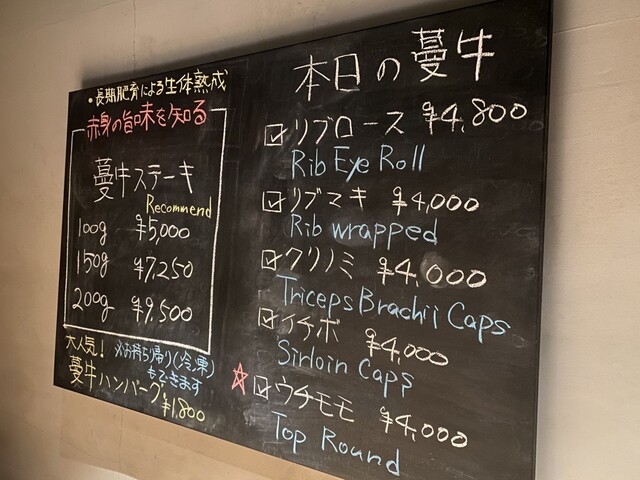 ・長期肥育による生体熟成
赤身の旨味を知る
蔓牛ステーキ
Recommend
100g ¥5,000
150g ¥7,250
200g ¥9,500
大人気!
※お持ち帰り(冷凍)
もできます
蔓牛ハンバーグ
¥1,800
本日の蔓牛
☑リブロース ¥4,800
Rib Eye Roll
☑リブマキ ¥4,000
Rib wrapped
☑クリノミ ¥4,000
Triceps Brachii Caps
☑イチボ ¥4,000
Sirloin Caps
☆☑ウチモモ ¥4,000
Top Round